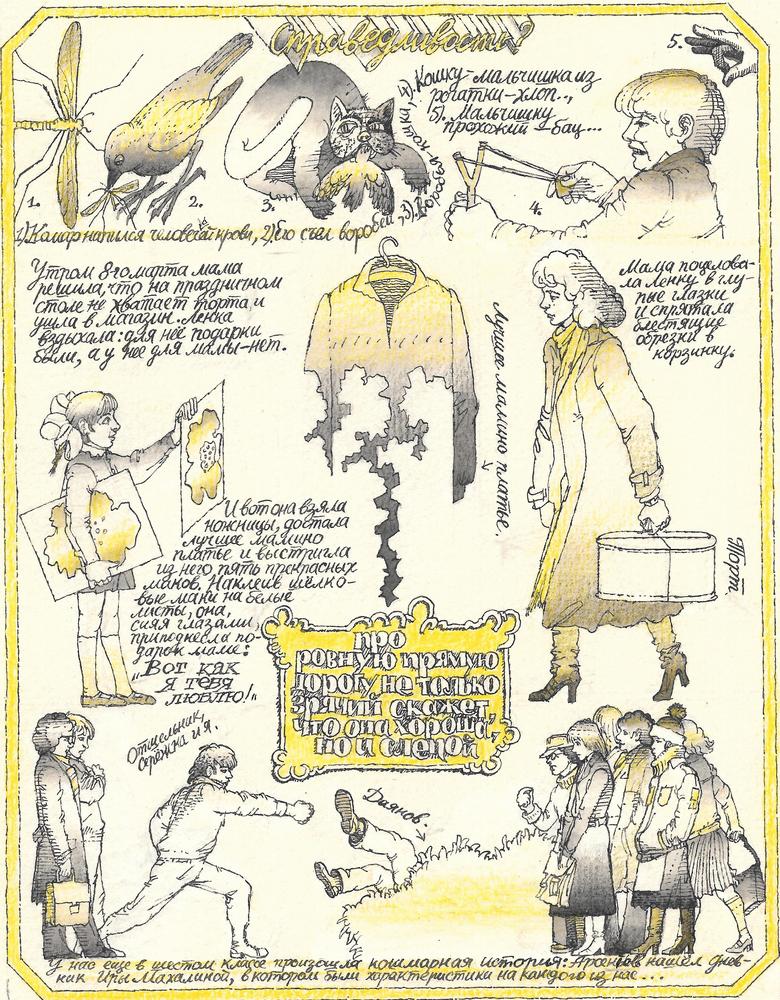 Справедливость?
5.
4). Кошку-мальчишка из
рогатки-хлоп..,
5). Мальчишку
прохожий -бац...
1.
2.
3.
4.
1) Комар напился человечьей крови, 2) Его съел воробей, 3). Воробья кошка,
Утром 8го марта мама
решила, что на праздничном
столе не хватает торта и
ушла в магазин. Ленка
вздыхала: для неё подарки
были, а у неё для мамы-нет.
Лучшее мамино платье.
Мама поцелова-
ла Ленку в глу-
пые глазки
и спрятала
блестящие
обрезки в
корзинку.
И вот она взяла
ножницы, достала
лучшее мамино
платье и выстригла
из него пять прекрасных
маков. Наклеив шёлко-
вые маки на белые
листы, она,
сияя глазами,
приподнесла по-
дарок маме:
"Вот как
я тебя
люблю!"
Торт.
про
ровную прямую
дорогу не только
зрячий скажет,
что она хороша,
но и слепой
Отшельник,
Сережка и я.
Даянов.
У нас еще в шестом классе произошла кошмарная история: Арсентьев нашел днев-
ник Иры Махалиной, в котором были характеристики на каждого из нас...